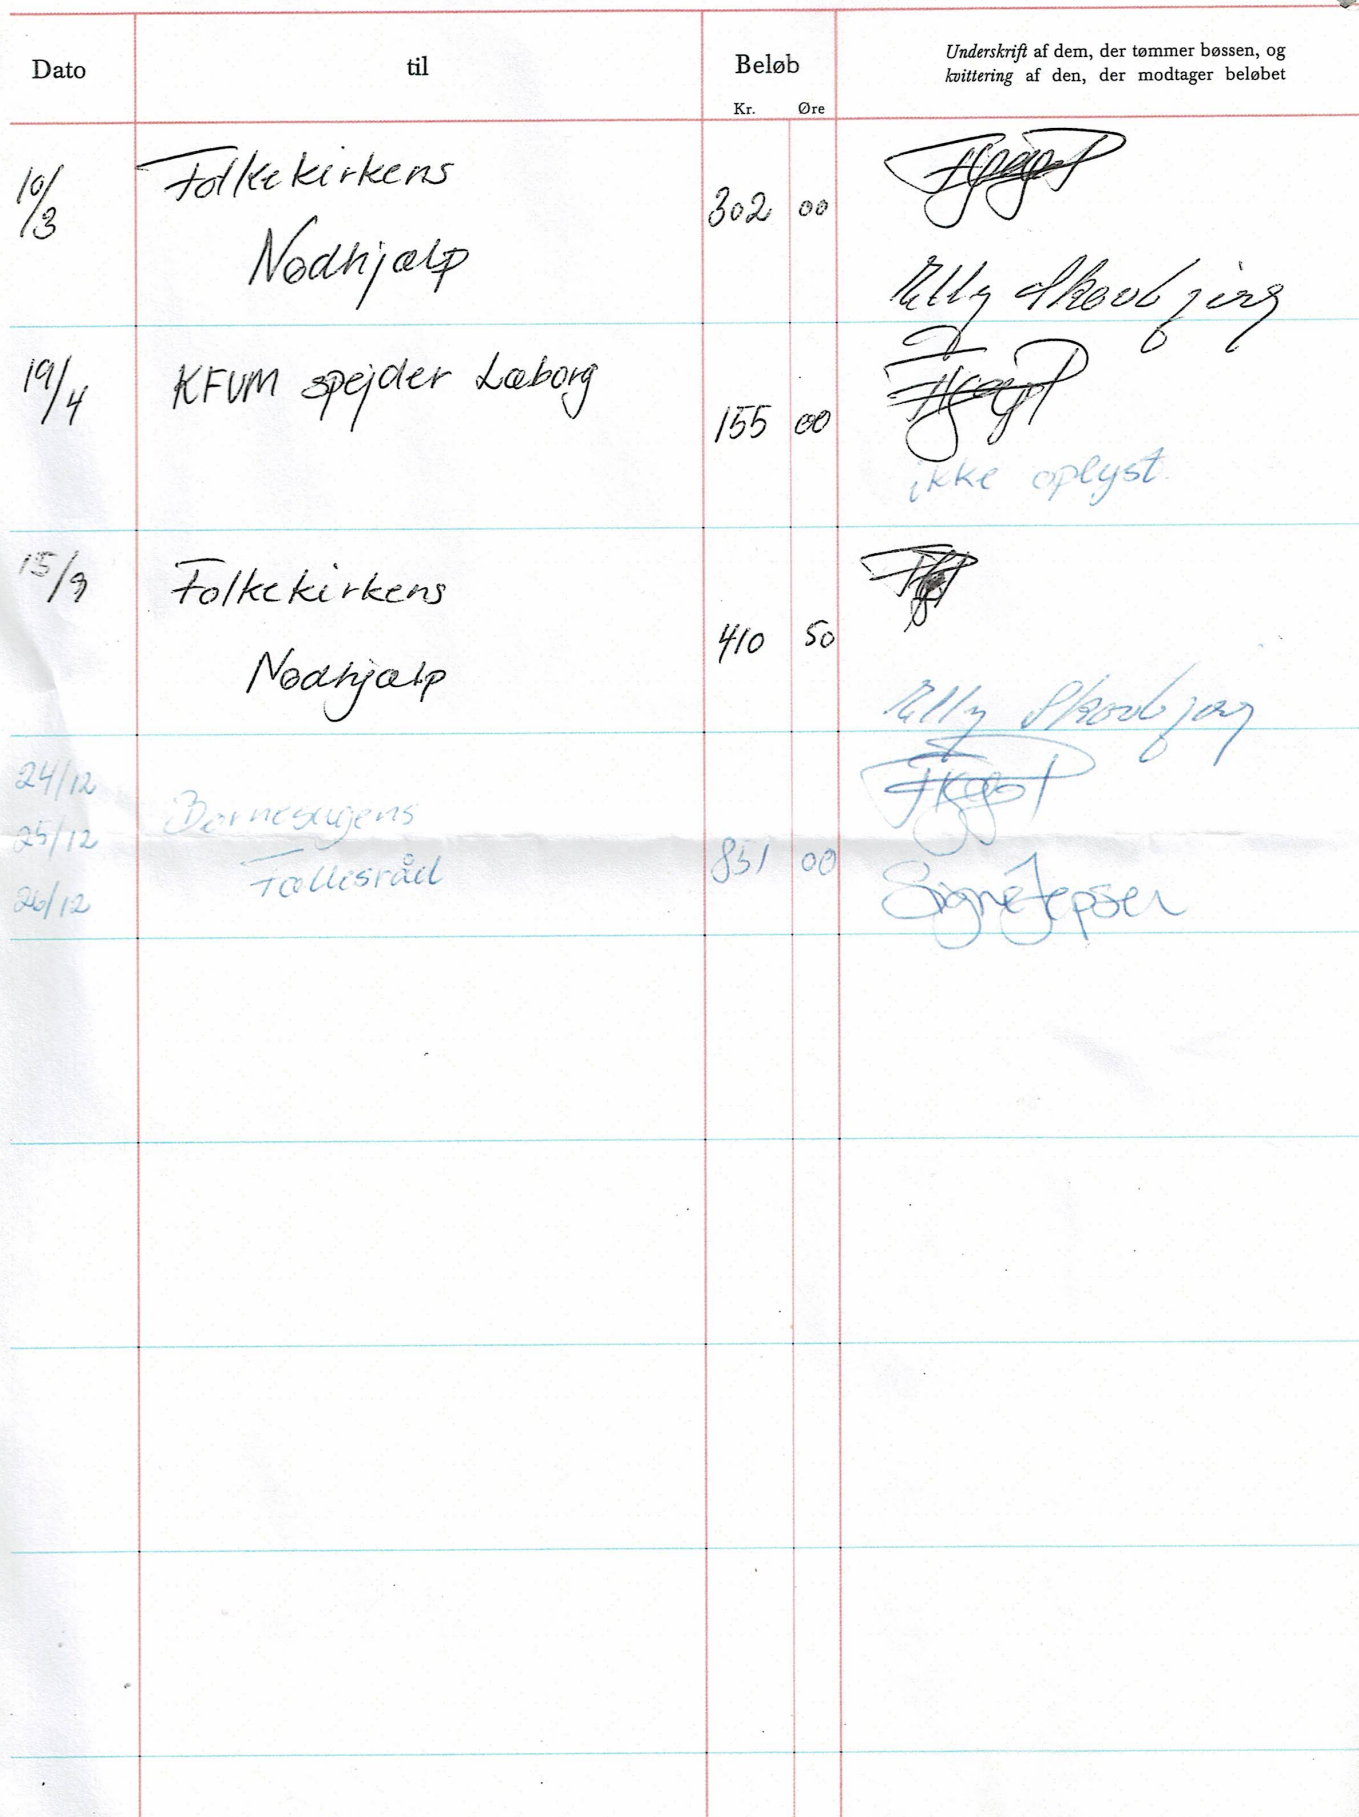 Dato til Beløb Underskrift af dem, der tømmer bøssen, og
kvittering af den, der modtager beløbet
Kr. Øre
10/3 Folkekirkens 302 00
Nødhjælp
Elly Skovbjerg
19/4 KFVM spejder Læborg 155 00
ikke oplyst.
15/9 Folkekirkens 410 50
Nødhjælp
Elly Skovbjerg
24/12
25/12 Børnesagens
Fællesråd 851 00
26/12 Signe Jepsen